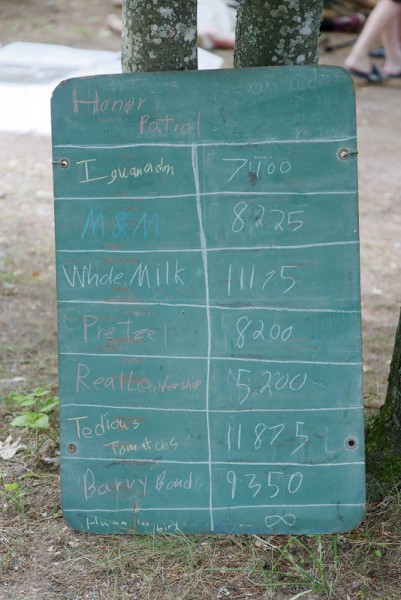 Honor
Patrol
Iguanadon 7100
M&M 8225
Whole Milk 11175
Pretzel 8200
5,200
Tedious
Tomatoes 11875
Barvy Band 9350
∞